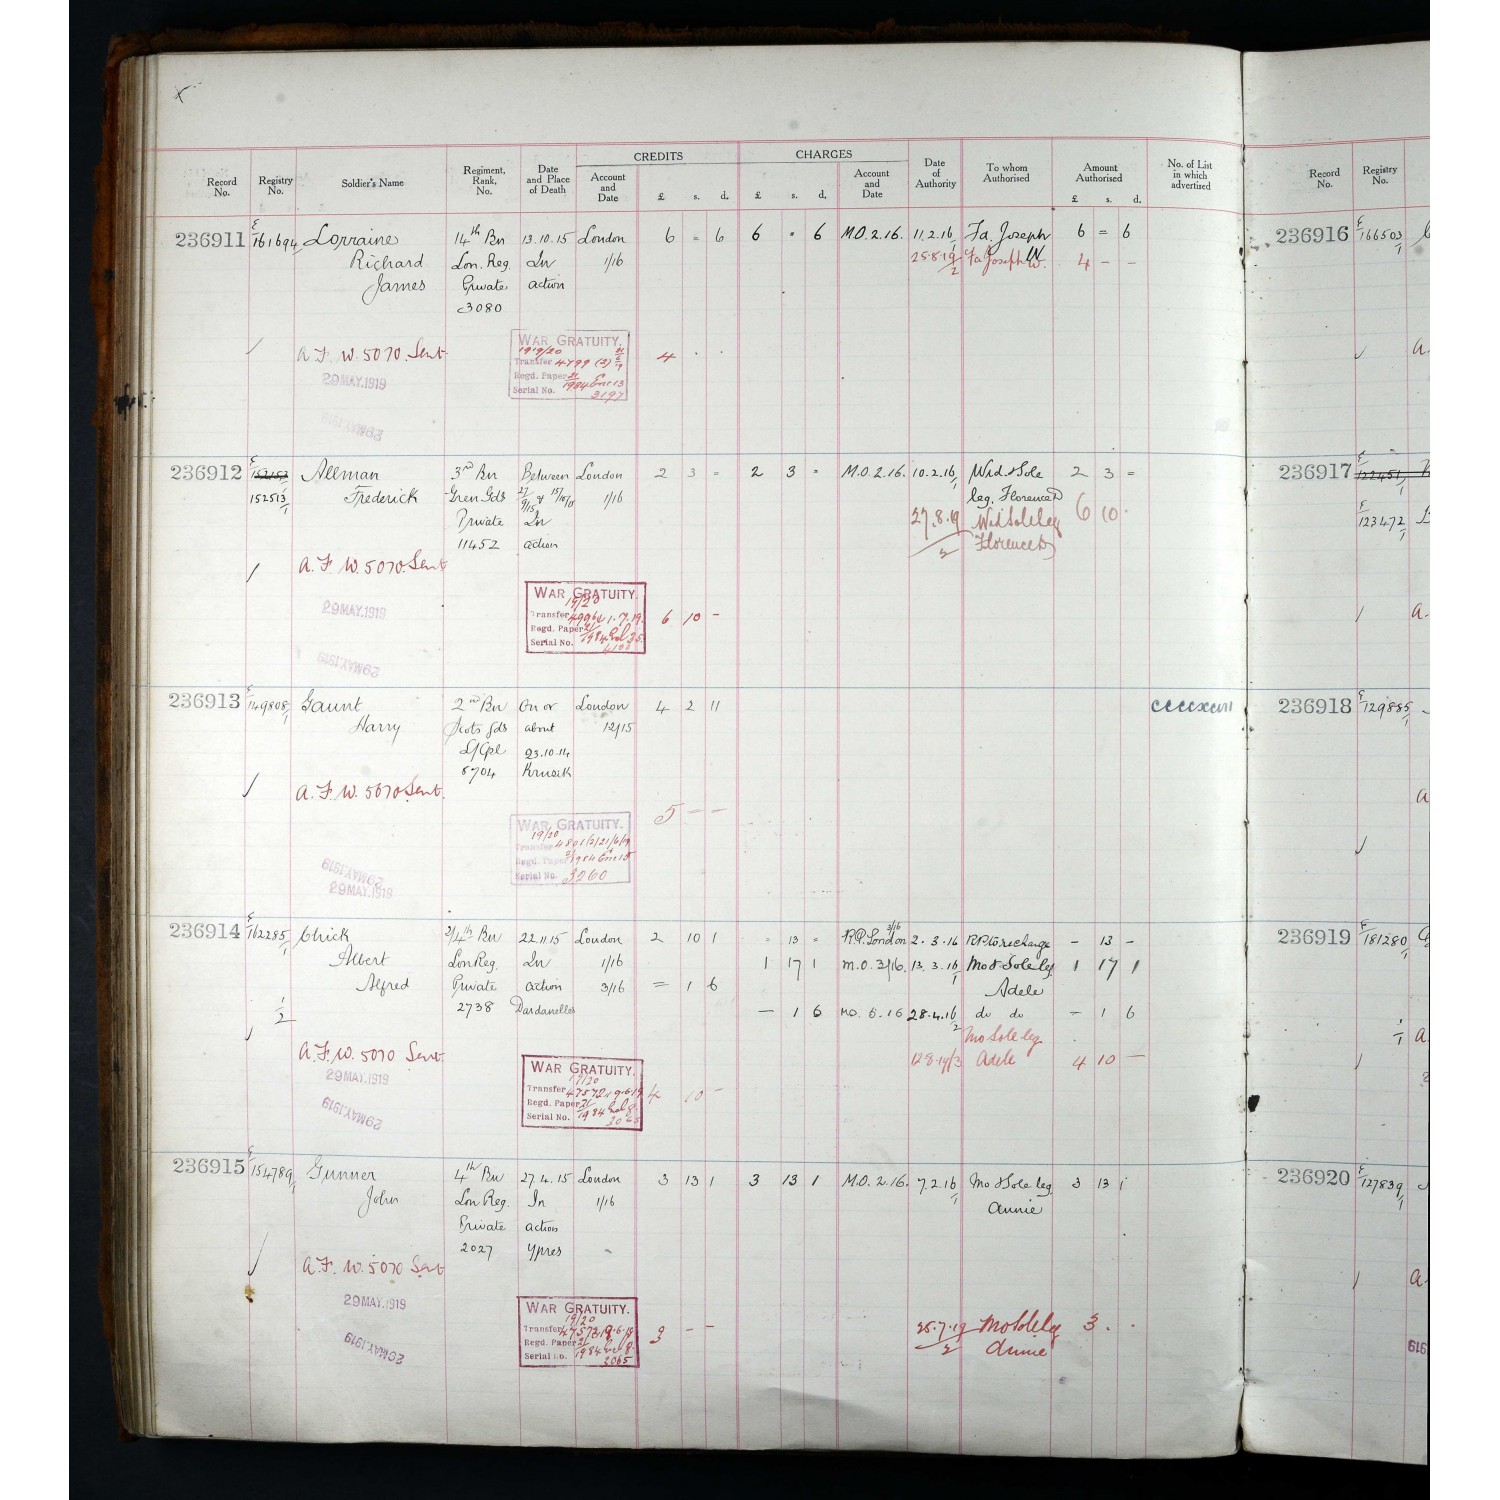 CREDITS CHARGES
Record No. Registry No. Soldier's Name Regiment, Rank, No. Date and Place of Death Account and Date £ s. d. £ s. d. Account and Date Date of Authority To whom Authorised Amount Authorised £ s. d. No. of List in which advertised Record No. Registry No.
236911 E/161694 Lorraine 14th Bn 13.10.15 London 6 = 6 6 " 6 M.O.2.16. 11.2.16/1 Fa. Joseph 6 = 6 236916 E/166503/1
Richard Lon. Reg. In 1/16 25.8.19/2 Fa Joseph W. 4 - -
James Private action
3080
A.F.W. 5070. Sent WAR GRATUITY. 4 . .
1919/20
29 MAY.1919 Transfer 4799 (2)
Regd. Paper 21/1984
Serial No. 3197
29 MAY.1919
236912 E/152153 Allman 3rd Bn Between London 2 3 = 2 3 " M.O.2.16. 10.2.16/1 Wid & Sole 2 3 = 236917 E/122451/1
152513/1 Frederick Gren Gds 1/16 leg. Florence D
Private In 27.8.19/2 Wid Sole leg 6 10 . E/123472/1
11452 action Florence D
A.F.W. 5070. Sent
29 MAY.1919 WAR GRATUITY.
19/20
Transfer 1.7.19. 6 10 -
Regd. Paper 21/1984
Serial No.
29 MAY.1919
236913 E/149808/1 Gaunt 2nd Bn On or London 4 2 11 cccxcvii 236918 E/129885/1
Harry Scots Gds about 12/15
L/Cpl 23.10.14
8704 Kruseik
A.F.W. 5070 Sent.
5 - -
WAR GRATUITY.
19/20
Transfer
Regd. Paper 21/1984
29 MAY.1919 Serial No. 3260
29 MAY.1919
236914 E/162285/1 Chick 2/4th Bn 22.11.15 London 2 10 1 " 13 " R.P. London 3/16 2.3.16 R.P. to recharge - 13 - 236919 E/181280/1
Albert Lon Reg. In 1/16 1 17 1 M.O. 3/16. 13.3.16/1 Mo & Sole leg 1 17 1
Alfred Private action 3/16 = 1 6 Adele
1/2 2738 Dardanelles - 1 6 MO. 5.16 28.4.16/2 do do - 1 6
Mo Sole leg
A.F.W. 5070 Sent 12.8.19/3 Adele 4 10 -
29 MAY.1919 WAR GRATUITY.
19/20
Transfer 4 10 -
29 MAY.1919 Regd. Paper 21/1984
Serial No.
236915 E/154789/1 Gunner 4th Bn 27.4.15 London 3 13 1 3 13 1 M.O.2.16. 7.2.16/1 Mo & Sole leg 3 13 1 236920 E/127839/1
John Lon Reg. In 1/16 Annie
Private action
2027 Ypres
A.F.W. 5070 Sent
29 MAY.1919 WAR GRATUITY.
19/20
Transfer 3 - - 25.7.19/2 Mo Sole leg 3 . .
29 MAY.1919 Regd. Paper 21/1984 Annie
Serial No. 2065